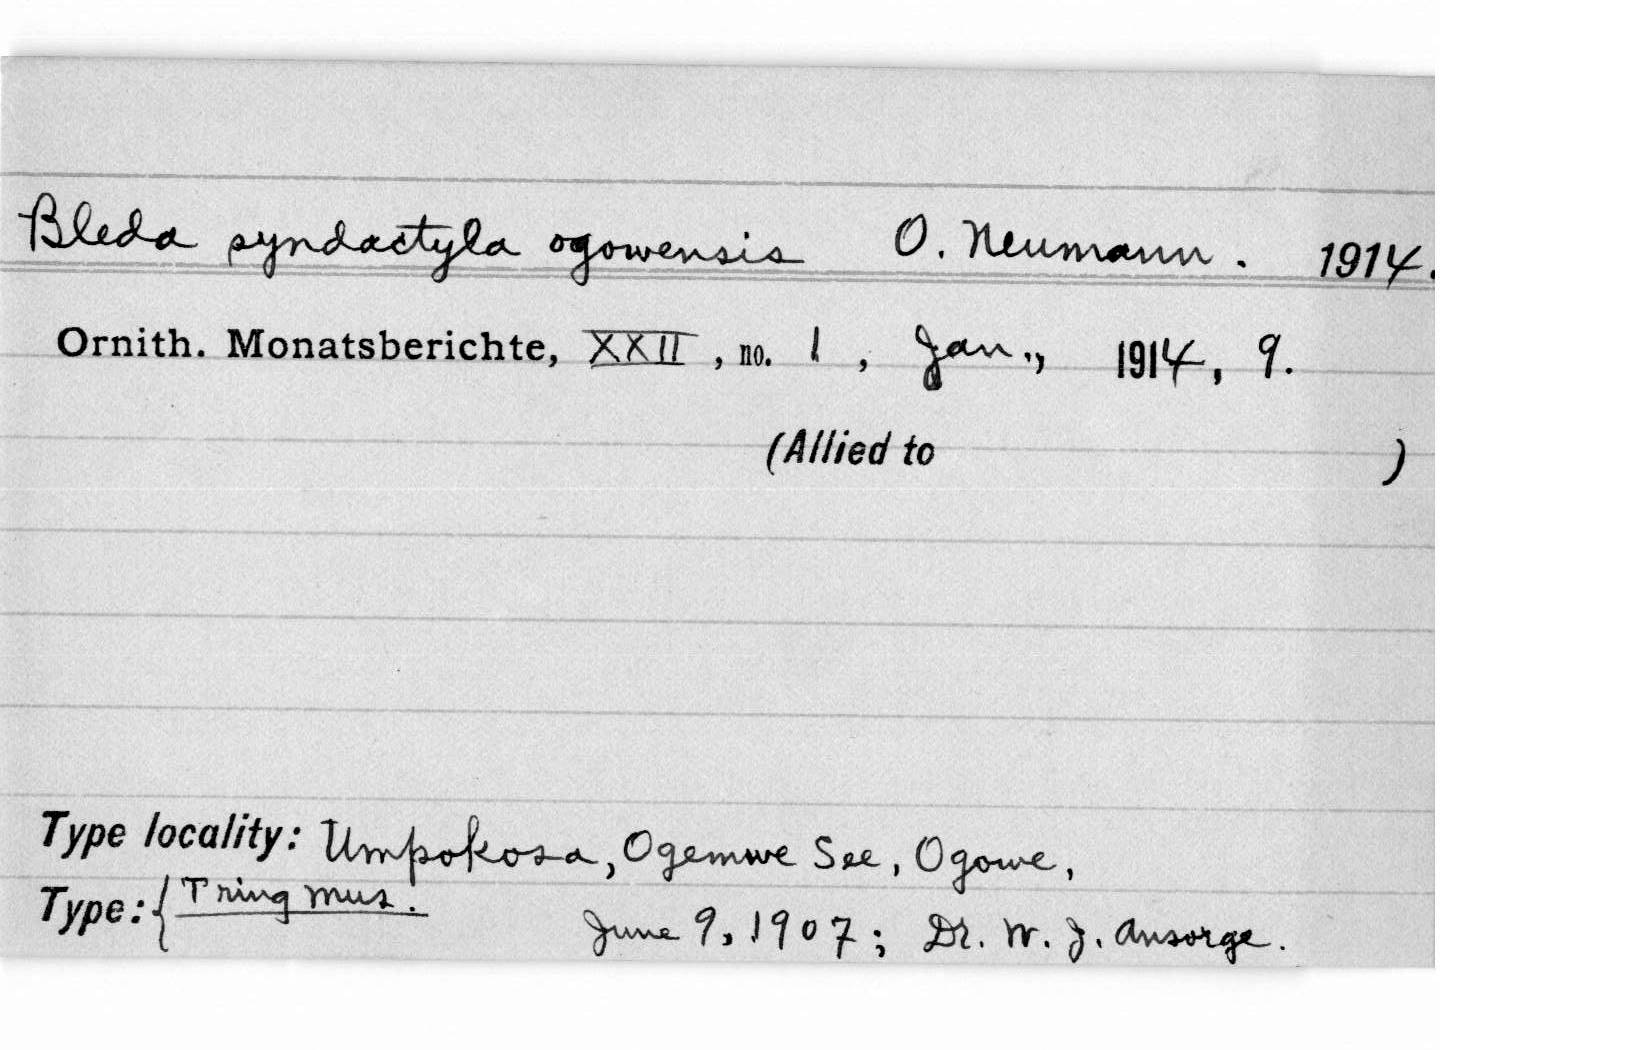 Bleda syndactyla ogowensis O. Neumann. 1914.
Ornith. Monatsberichte, XXII, no. 1, Jan., 1914, 9.
(Allied to )
Type locality: Umpokosa, Ogemwe See, Ogowe,
Type: { Tring Mus.
June 9, 1907; Dr. W. J. Ansorge.